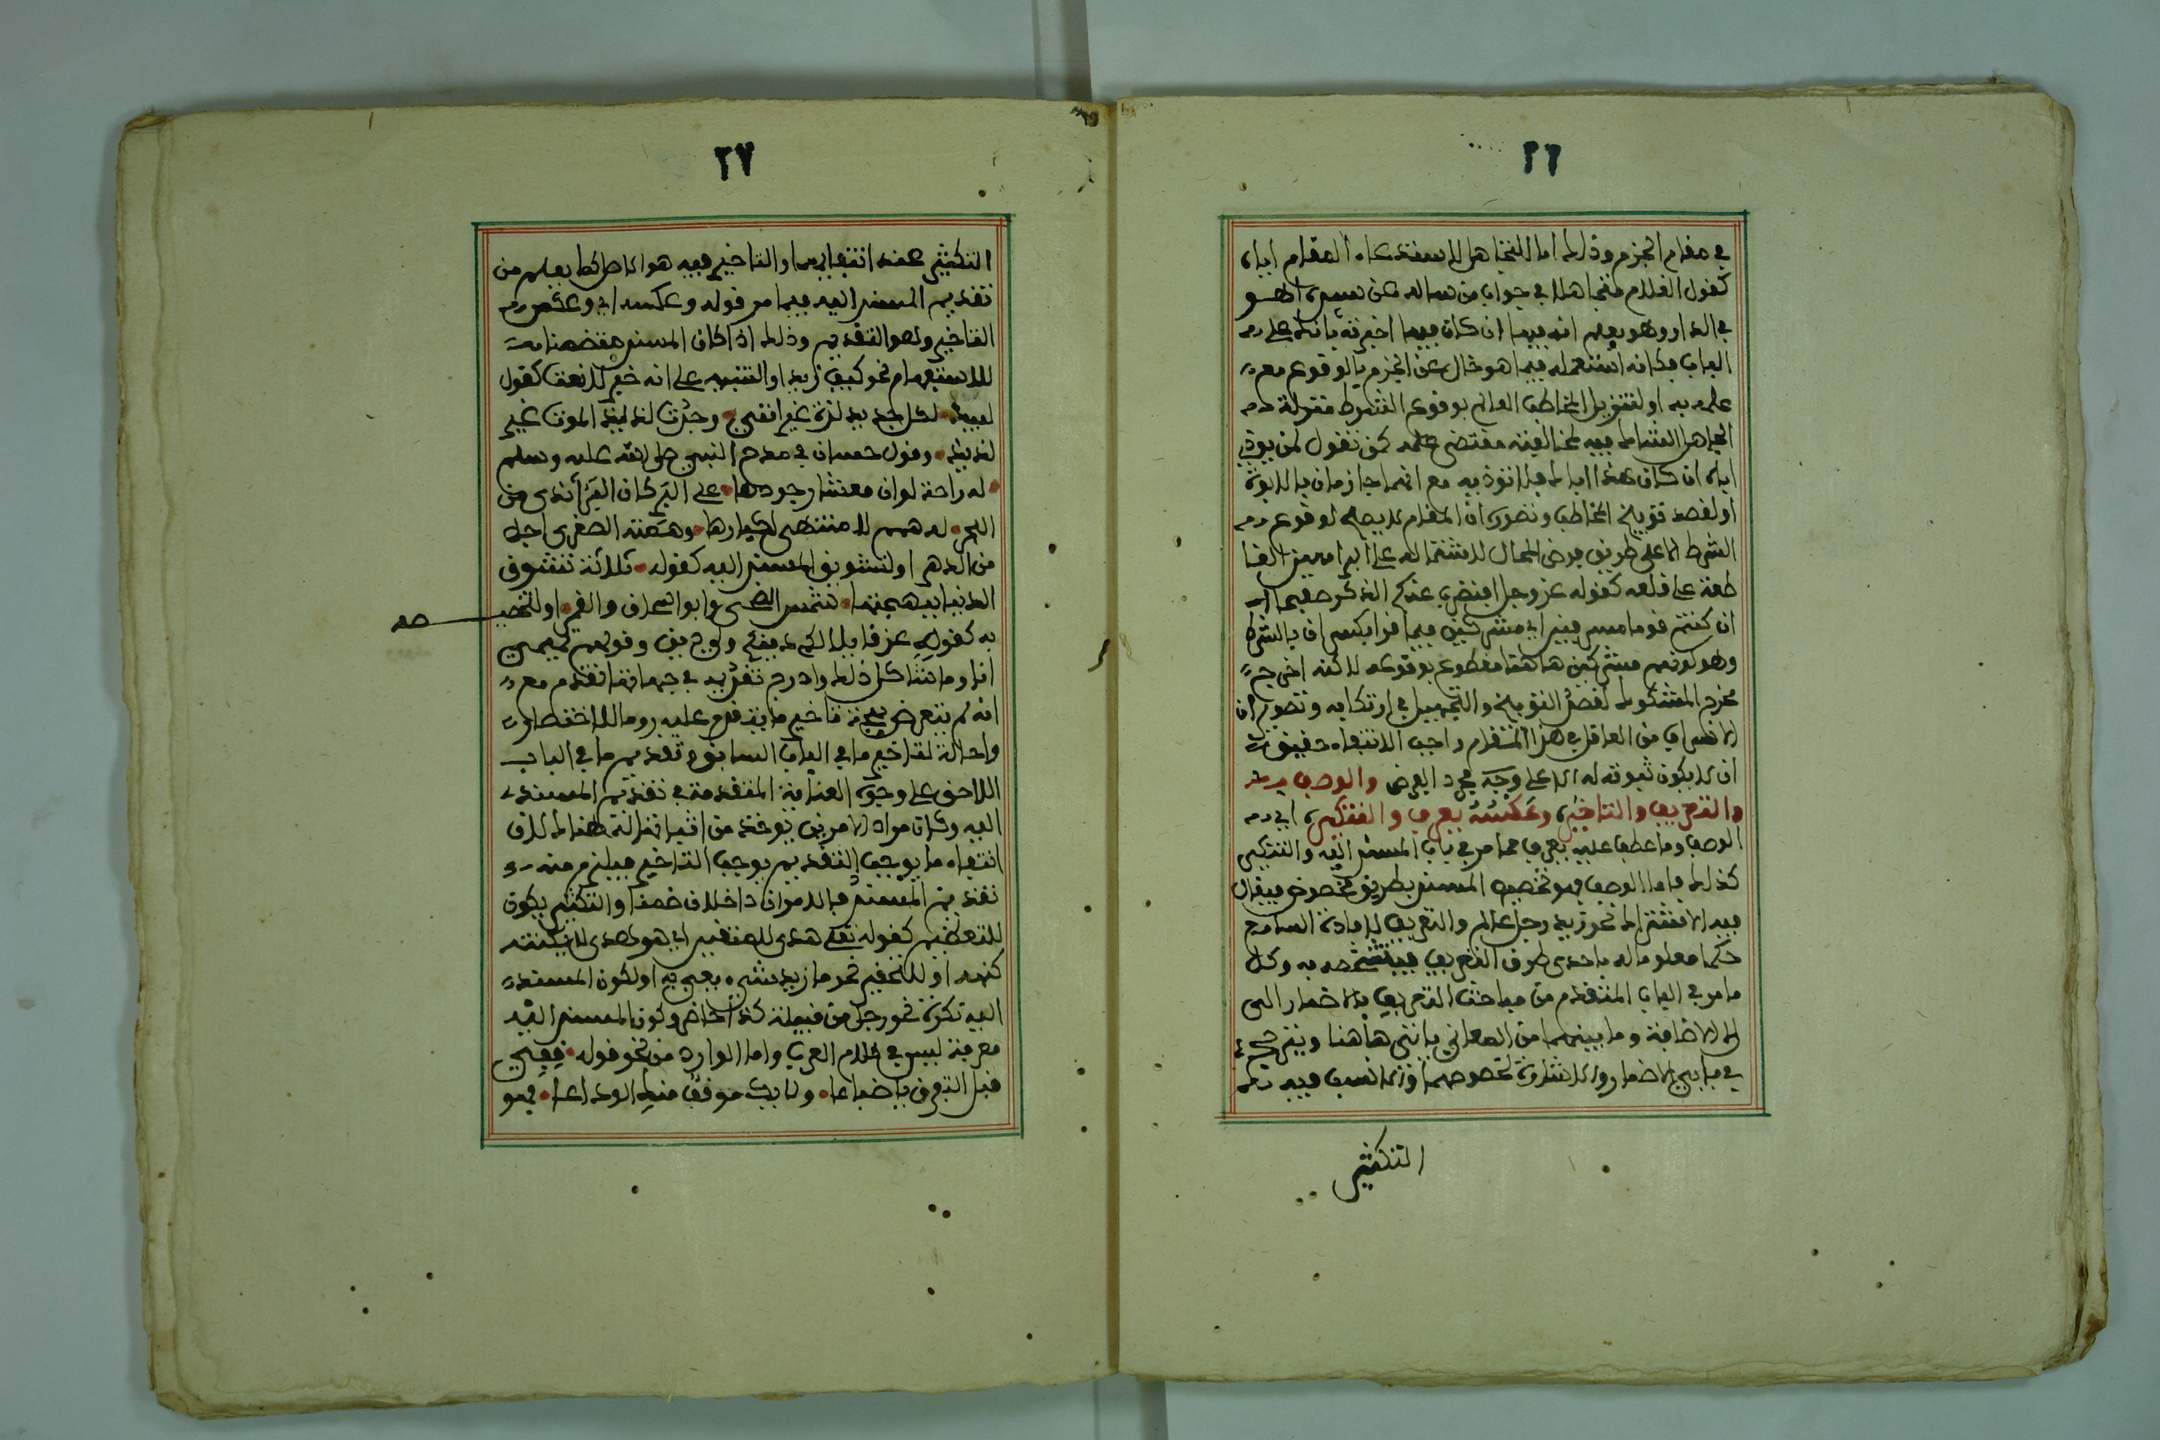 ٢٦
في مقام الجزم وذلك اما للتجاهل لاستدعاء المقام اياه
كقول الغلام متجاهلا في جواب من سأله عن سيده اهو
في الدار وهو يعلم انه فيها ان كان فيها اخبرته بانك على
الباب فكأنه استعمله فيما هو خال عن الجزم بالوقوع مع
علمه به او لتنزيل المخاطب العالم بوقوع الشرط منزلة
الجاهل الشاك فيه لمخالفته مقتضى علمه كمن تقول لمن يوذي
اباه ان كان هذا اباك فلا توذيه مع انهما جازمان بالابوة
او لقصد توبيخ المخاطب وتصوير ان المقام لا يصلح لوقوع
الشرط الا على طريق فرض المحال لاشتماله على البراهين القا
طعة على قلعه كقوله عز وجل افنضرب عنكم الذكر صفحا
ان كنتم قوما مسرفين اي مشركين فيما قرا بكسر ان بالشرط
وهو كونهم مشركين هاهنا مقطوع بوقوعه لاكنه اخرج
مخرج المشكوك لقصد التوبيخ والتجهيل في ارتكابه وتصوير ان
الاسراف من العاقل في هذا المقام واجب الانتفاء حقيق
ان لا يكون ثبوته له الا على وجه مجرد الفرض والوصف
والتعريف والتاخير وعكسه يعرف والتنكير اي
الوصف وما عطف عليه يعرف مما مر في باب المسند اليه والتنكير
كذلك فاما الوصف فهو تخصيص المسند بطريق مخصوص فيقال
فيه الافشتراك نحو زيد رجل عالم والتعريف لافادة السامع
حكما معلوما له باحدى طرق التعريف وكل
ما مر في الباب المتقدم من مباحث التعريف بالاضمار الى
الاضافة وما بينهما من المعاني ياتي هاهنا
في بابي الاضمار والاشارة لخصوصهما وانما السبب فيه
التنكير
٢٧
التكثير عند انتفائهما والتاخير فيه هو الاصل كما يعلم من
تقديم المسند اليه فيما مر قوله وعكسه اي وعكس
التاخير وهو التقديم وذلك اذا كان المسند متضمنا
للاستفهام نحو كيف زيد او التنبيه على انه خبر لا نعت كقول
لبيد لكل جديد لذة غير انني وجدت لذيذ الموت غير
لذيذ وقول حسان في مدح النبي صلى الله عليه وسلم
له راحة لو ان معشار جودها على البر كان البر أندى من
البحر له همم لا منتهى لكبارها وهمته الصغرى اجل
من الدهر او لتشويق المسند اليه كقوله ثلاثة تشرق
الدنيا ببهجتها شمس الضحى وابو اسحاق والقمر او لتخصيـ
صه
به كقوله عز قايلا لكم دينكم ولي دين وقولهم تميمي
انا وما شاكل ذلك وادرج تقريد في جهاتها تقدم مع
انه لم يتعرض لجهة تاخير ما يتفرع عليه روما للاختصار
واحالة لتاخير ما في الباب السابق وتقديم ما في الباب
اللاحق على وجوه العناية المتقدمة في تقديم المسند
اليه وكان مراد الامرين يوخذ من اثباتها لتهنالك لان
انتفاء ما يوجب التقديم يوجب التاخير فيلزم منه
تقديم المسند فالامران داخلان ضمنا والتنكير يكون
للتعظيم كقوله تعلى هدى للمتقين اي هو هدى لا يكتنه
كنهه او للتحقير نحو ما زيد شيء يعبى به او لكون المسند
اليه نكرة نحو رجل من قبيلة كذا حاضر وكون المسند اليه
معرفة ليس في كلام العرب واما الوارد من نحو قوله قفي
قبل التفرق يا ضباعا ولا يك موقف منك الوداعا فهو